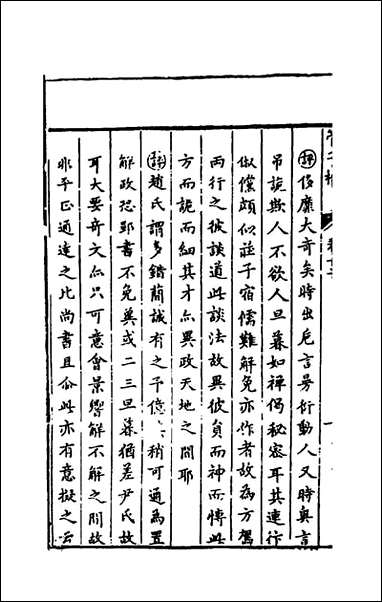 評侈靡大奇矣時出巵言曼衍動人又時奧言
吊詭欺人不欲人旦暮如禪偈秘密耳其連行
俶儻頗似莊子宿儒難解免亦作者故為方駕
兩行之彼談道此談法故異彼貞而神而愽此
方而詭而細其才亦異政天地之間耶
評趙氏謂多錯簡誠有之予億稍可通為置
解政恐郢書不免冀或二三旦暮猶差尹氏故
耳大要奇文亦只可意會景響解不解之間故
非平正通達之比尚書且尒此亦有意擬之云